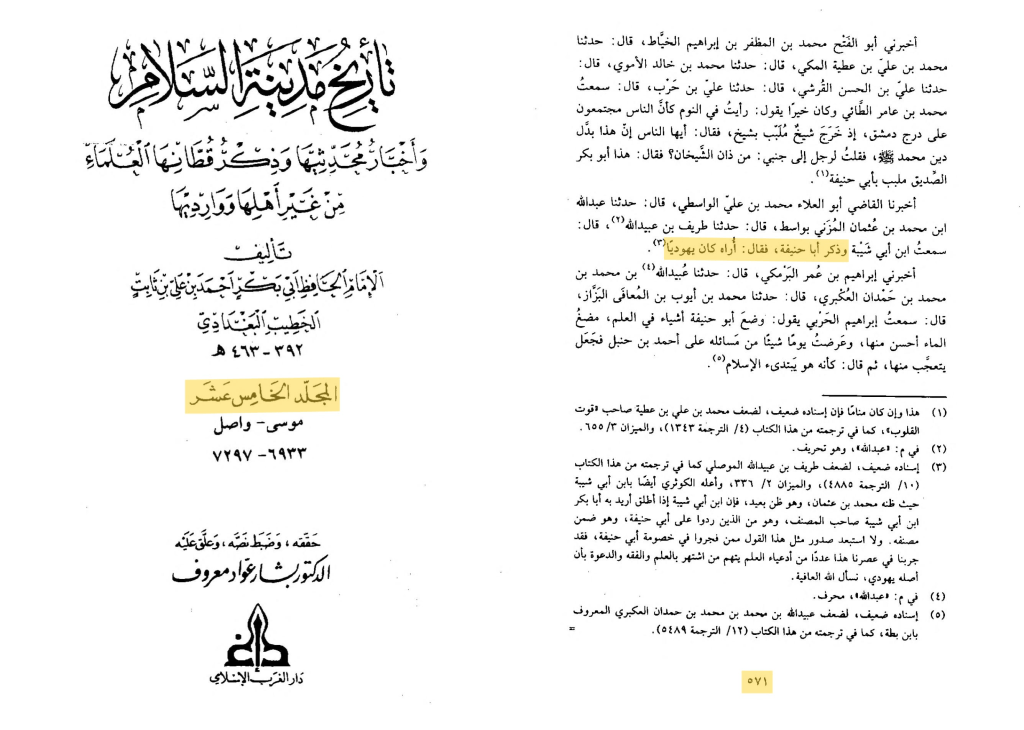 تاريخ مدينة السلام
وأخبار محدثيها وذكر قطانها العلماء
من غير أهلها ووارديها
تأليف
الإمام الحافظ أبي بكر أحمد بن علي بن ثابت
الخطيب البغدادي
٣٩٢ - ٤٦٣ هـ
المجلد الخامس عشر
موسى - واصل
٦٩٣٣ - ٧٢٩٧
حققه، وضبط نصه، وعلق عليه
الدكتور بشار عواد معروف
دار الغرب الإسلامي
أخبرني أبو الفَتْح محمد بن المظفر بن إبراهيم الخيَّاط، قال: حدثنا
محمد بن عليّ بن عطية المكي، قال: حدثنا محمد بن خالد الأموي، قال:
حدثنا عليّ بن الحسن القُرشي، قال: حدثنا عليّ بن حَرْب، قال: سمعتُ
محمد بن عامر الطَّائي وكان خيرًا يقول: رأيتُ في النوم كأنَّ الناس مجتمعون
على درج دمشق، إذ خَرَجَ شيخٌ مُلَبِّب بشيخ، فقال: أيها الناس إنَّ هذا بدَّل
دين محمد ﷺ، فقلتُ لرجل إلى جنبي: من ذان الشَّيخان؟ فقال: هذا أبو بكر
الصِّديق ملبب بأبي حنيفة(١).
أخبرنا القاضي أبو العلاء محمد بن عليّ الواسطي، قال: حدثنا عبدالله
ابن محمد بن عُثمان المُزَني بواسط، قال: حدثنا طريف بن عبيدالله(٢)، قال:
سمعتُ ابن أبي شَيْبة وذكر أبا حنيفة، فقال: أُراه كان يهوديًا(٣).
أخبرني إبراهيم بن عُمر البَرْمكي، قال: حدثنا عُبيدالله(٤) بن محمد بن
محمد بن حَمْدان العُكْبري، قال: حدثنا محمد بن أيوب بن المُعافى البَزَّاز،
قال: سمعتُ إبراهيم الحَرْبي يقول: وضعَ أبو حنيفة أشياء في العلم، مضغُ
الماء أحسن منها، وعَرضتُ يومًا شيئًا من مَسائله على أحمد بن حنبل فجَعَل
يتعجَّب منها، ثم قال: كأنه هو يَبتدىء الإسلام(٥).
(١) هذا وإن كان منامًا فإن إسناده ضعيف، لضعف محمد بن علي بن عطية صاحب «قوت
القلوب»، كما في ترجمته من هذا الكتاب (٤/ الترجمة ١٣٤٣)، والميزان ٣/ ٦٥٥.
(٢) في م: «عبدالله»، وهو تحريف.
(٣) إسناده ضعيف، لضعف طريف بن عبيدالله الموصلي كما في ترجمته من هذا الكتاب
(١٠/ الترجمة ٤٨٨٥)، والميزان ٢/ ٣٣٦، وأعله الكوثري أيضًا بابن أبي شيبة
حيث ظنه محمد بن عثمان، وهو ظن بعيد، فإن ابن أبي شيبة إذا أطلق أريد به أبا بكر
ابن أبي شيبة صاحب المصنف، وهو من الذين ردوا على أبي حنيفة، وهو ضمن
مصنفه. ولا استبعد صدور مثل هذا القول ممن فجروا في خصومة أبي حنيفة، فقد
جربنا في عصرنا هذا عددًا من أدعياء العلم يتهم من اشتهر بالعلم والفقه والدعوة بأن
أصله يهودي، نسأل الله العافية.
(٤) في م: «عبدالله»، محرف.
(٥) إسناده ضعيف، لضعف عبيدالله بن محمد بن محمد بن حمدان العكبري المعروف
بابن بطة، كما في ترجمته من هذا الكتاب (١٢/ الترجمة ٥٤٨٩). =
٥٧١